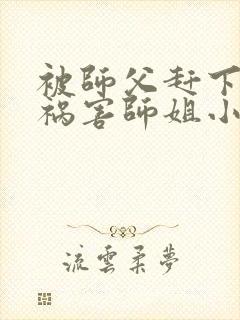 被師父赶下
祸害師姐小
流雲柔夢